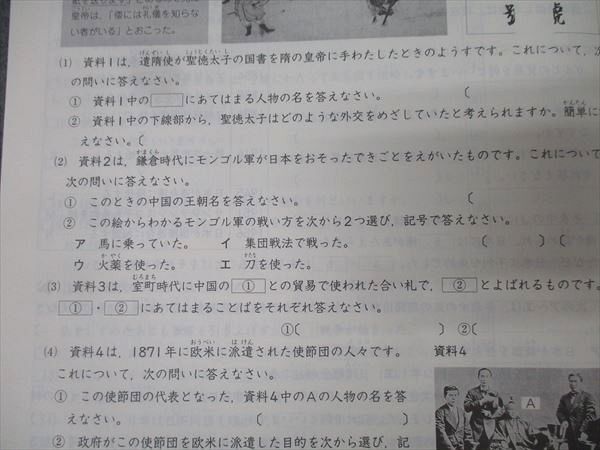 皇帝は、「倭には礼儀を知らな
い者がいる」とおこった。
(1) 資料1は、遣隋使が聖徳太子の国書を隋の皇帝に手わたしたときのようすです。これについて、次
の問いに答えなさい。
① 資料1中の□にあてはまる人物の名を答えなさい。〔
② 資料1中の下線部から、聖徳太子はどのような外交をめざしていたと考えられますか。簡単に
えなさい。〔
(2) 資料2は、鎌倉時代にモンゴル軍が日本をおそったできごとをえがいたものです。これについて
次の問いに答えなさい。
① このときの中国の王朝名を答えなさい。〔
② この絵からわかるモンゴル軍の戦い方を次から2つ選び、記号で答えなさい。
ア 馬に乗っていた。 イ 集団戦法で戦った。〔 〕〔
ウ 火薬を使った。 エ 刀を使った。
(3) 資料3は、室町時代に中国の①との貿易で使われた合い札で、②とよばれるものです。
①・②にあてはまることばをそれぞれ答えなさい。
①〔 〕②〔
(4) 資料4は、1871年に欧米に派遣された使節団の人々です。
これについて、次の問いに答えなさい。
資料4
① この使節団の代表となった、資料4中のAの人物の名を答
えなさい。〔 〕
A
② 政府がこの使節団を欧米に派遣した目的を次から選び、記